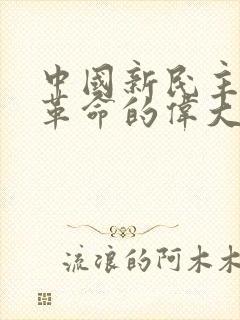 中國新民主
革命的偉大
流浪的阿木木